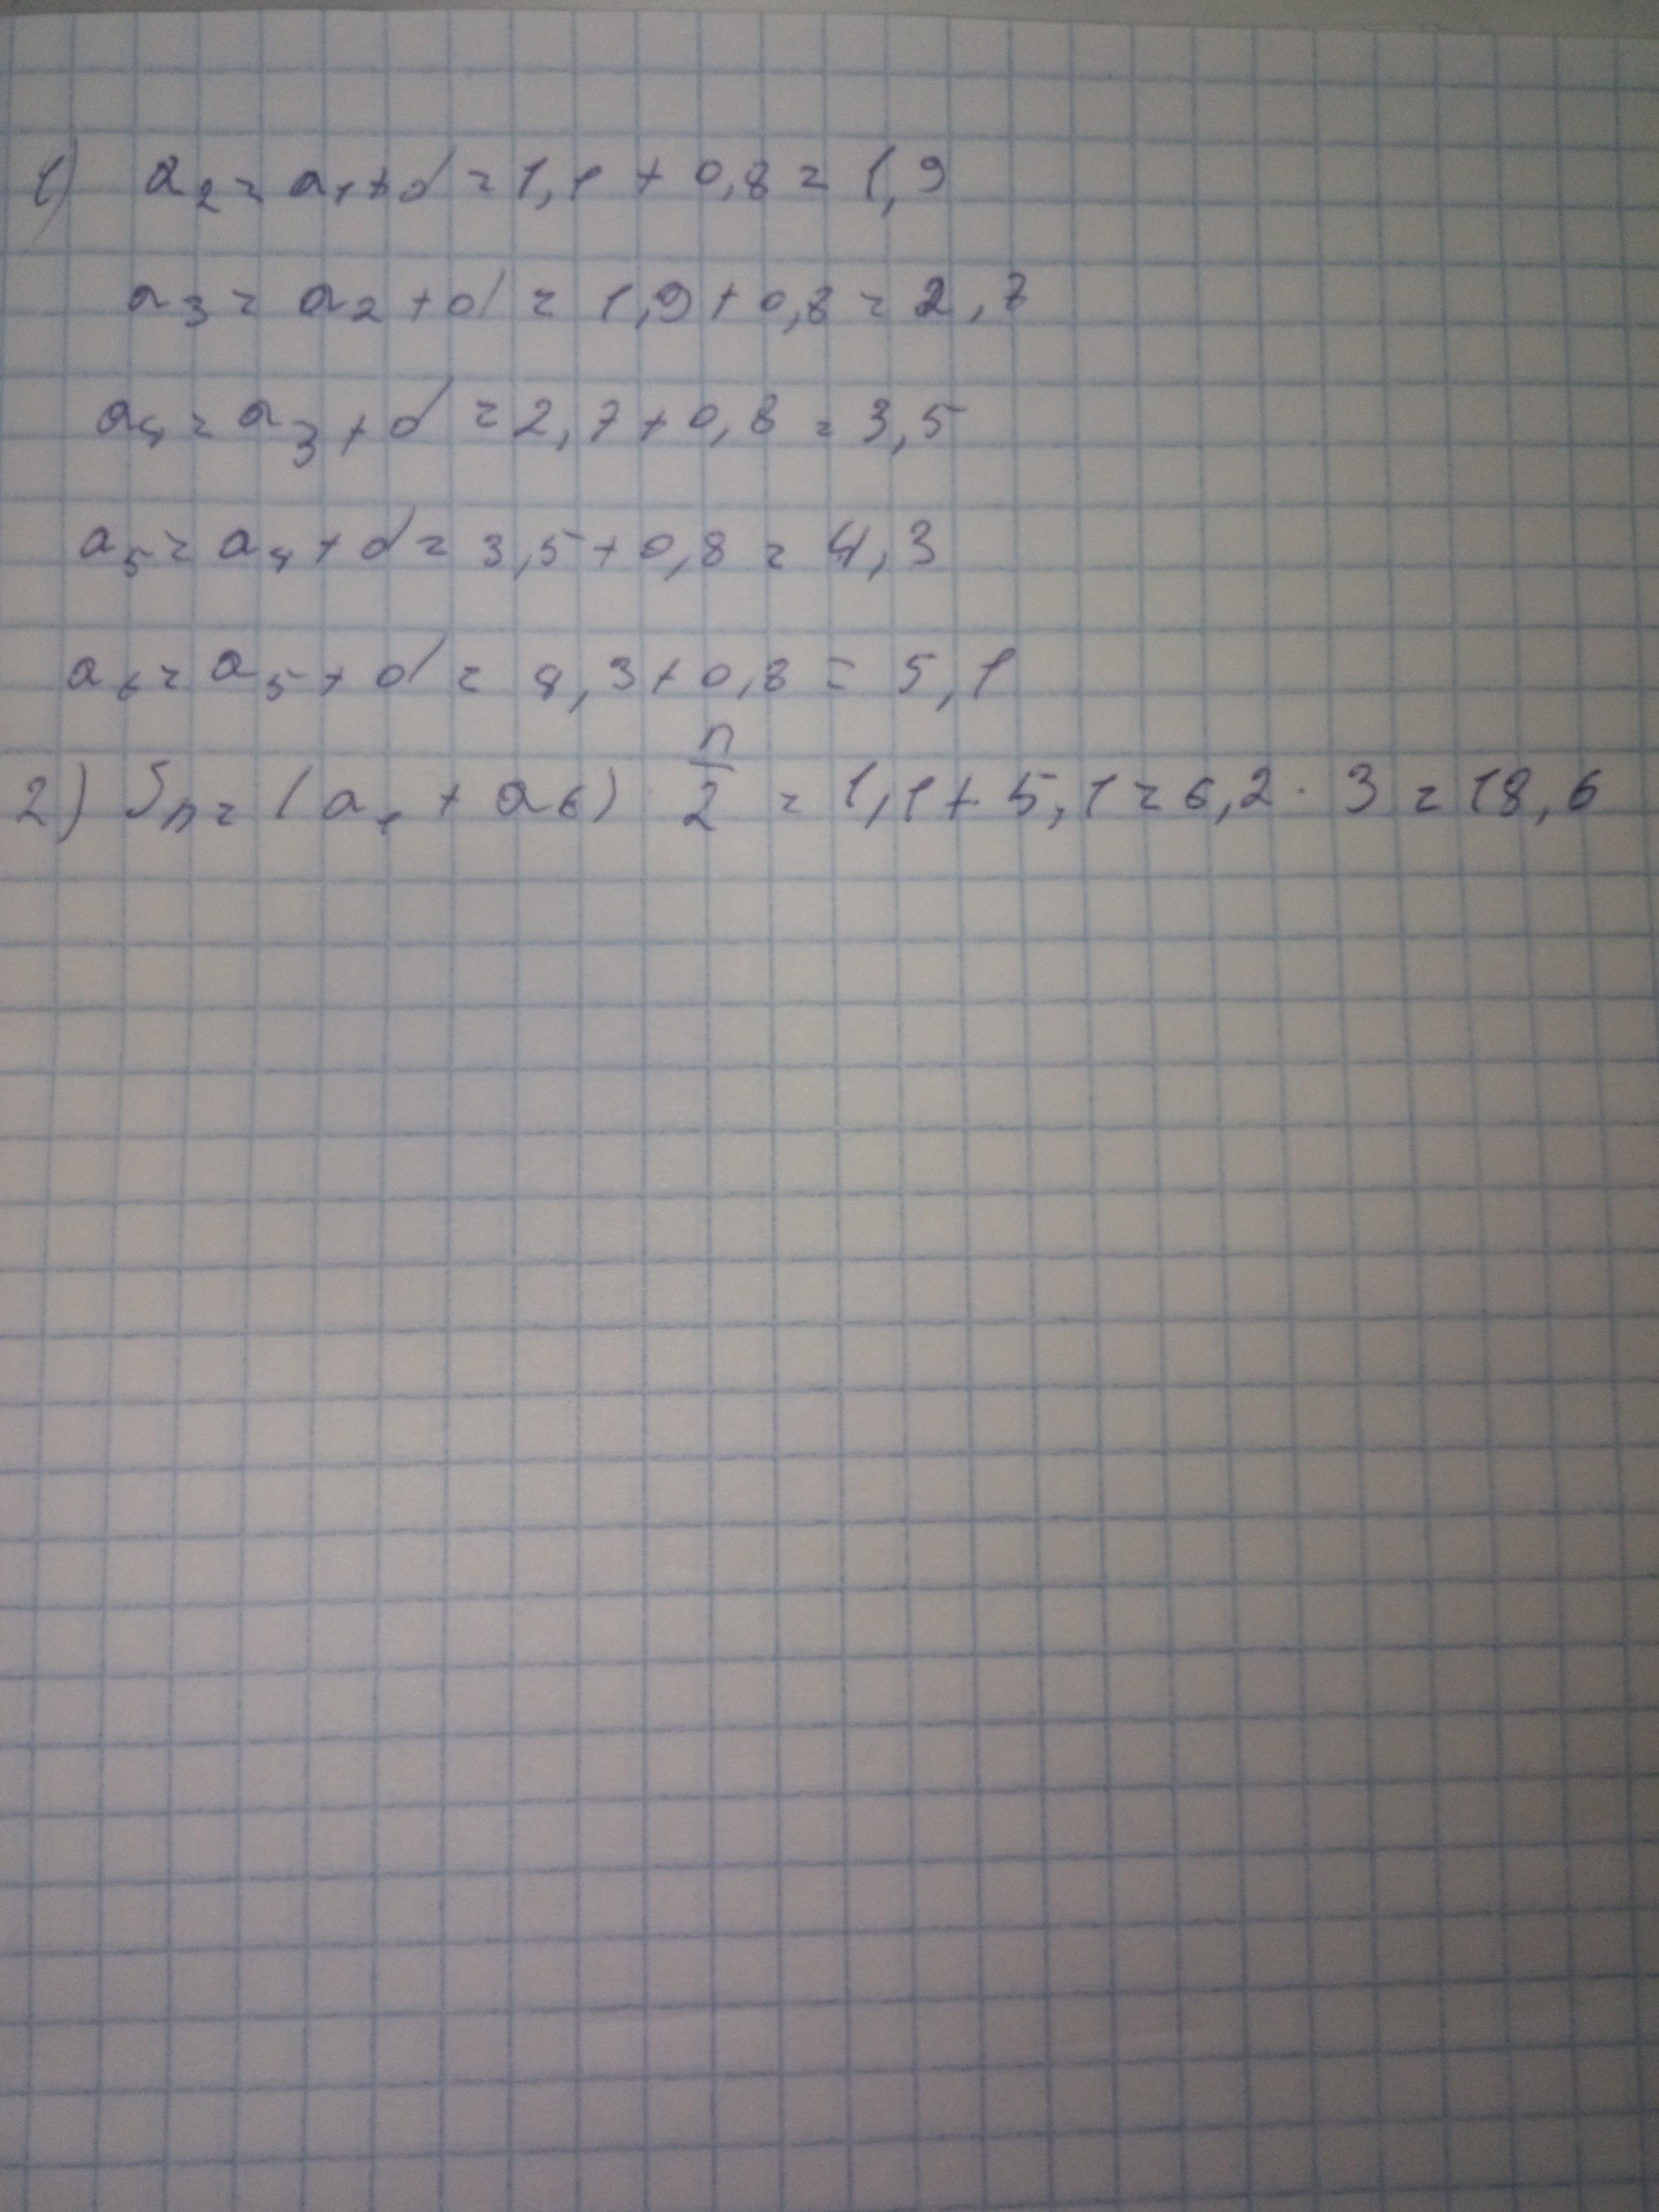 1) a₂ = a₁ + d = 1,1 + 0,8 = 1,9
a₃ = a₂ + d = 1,9 + 0,8 = 2,7
a₄ = a₃ + d = 2,7 + 0,8 = 3,5
a₅ = a₄ + d = 3,5 + 0,8 = 4,3
a₆ = a₅ + d = 4,3 + 0,8 = 5,1
2) Sₙ = (a₁ + a₆) · n/2 = 1,1 + 5,1 = 6,2 · 3 = 18,6